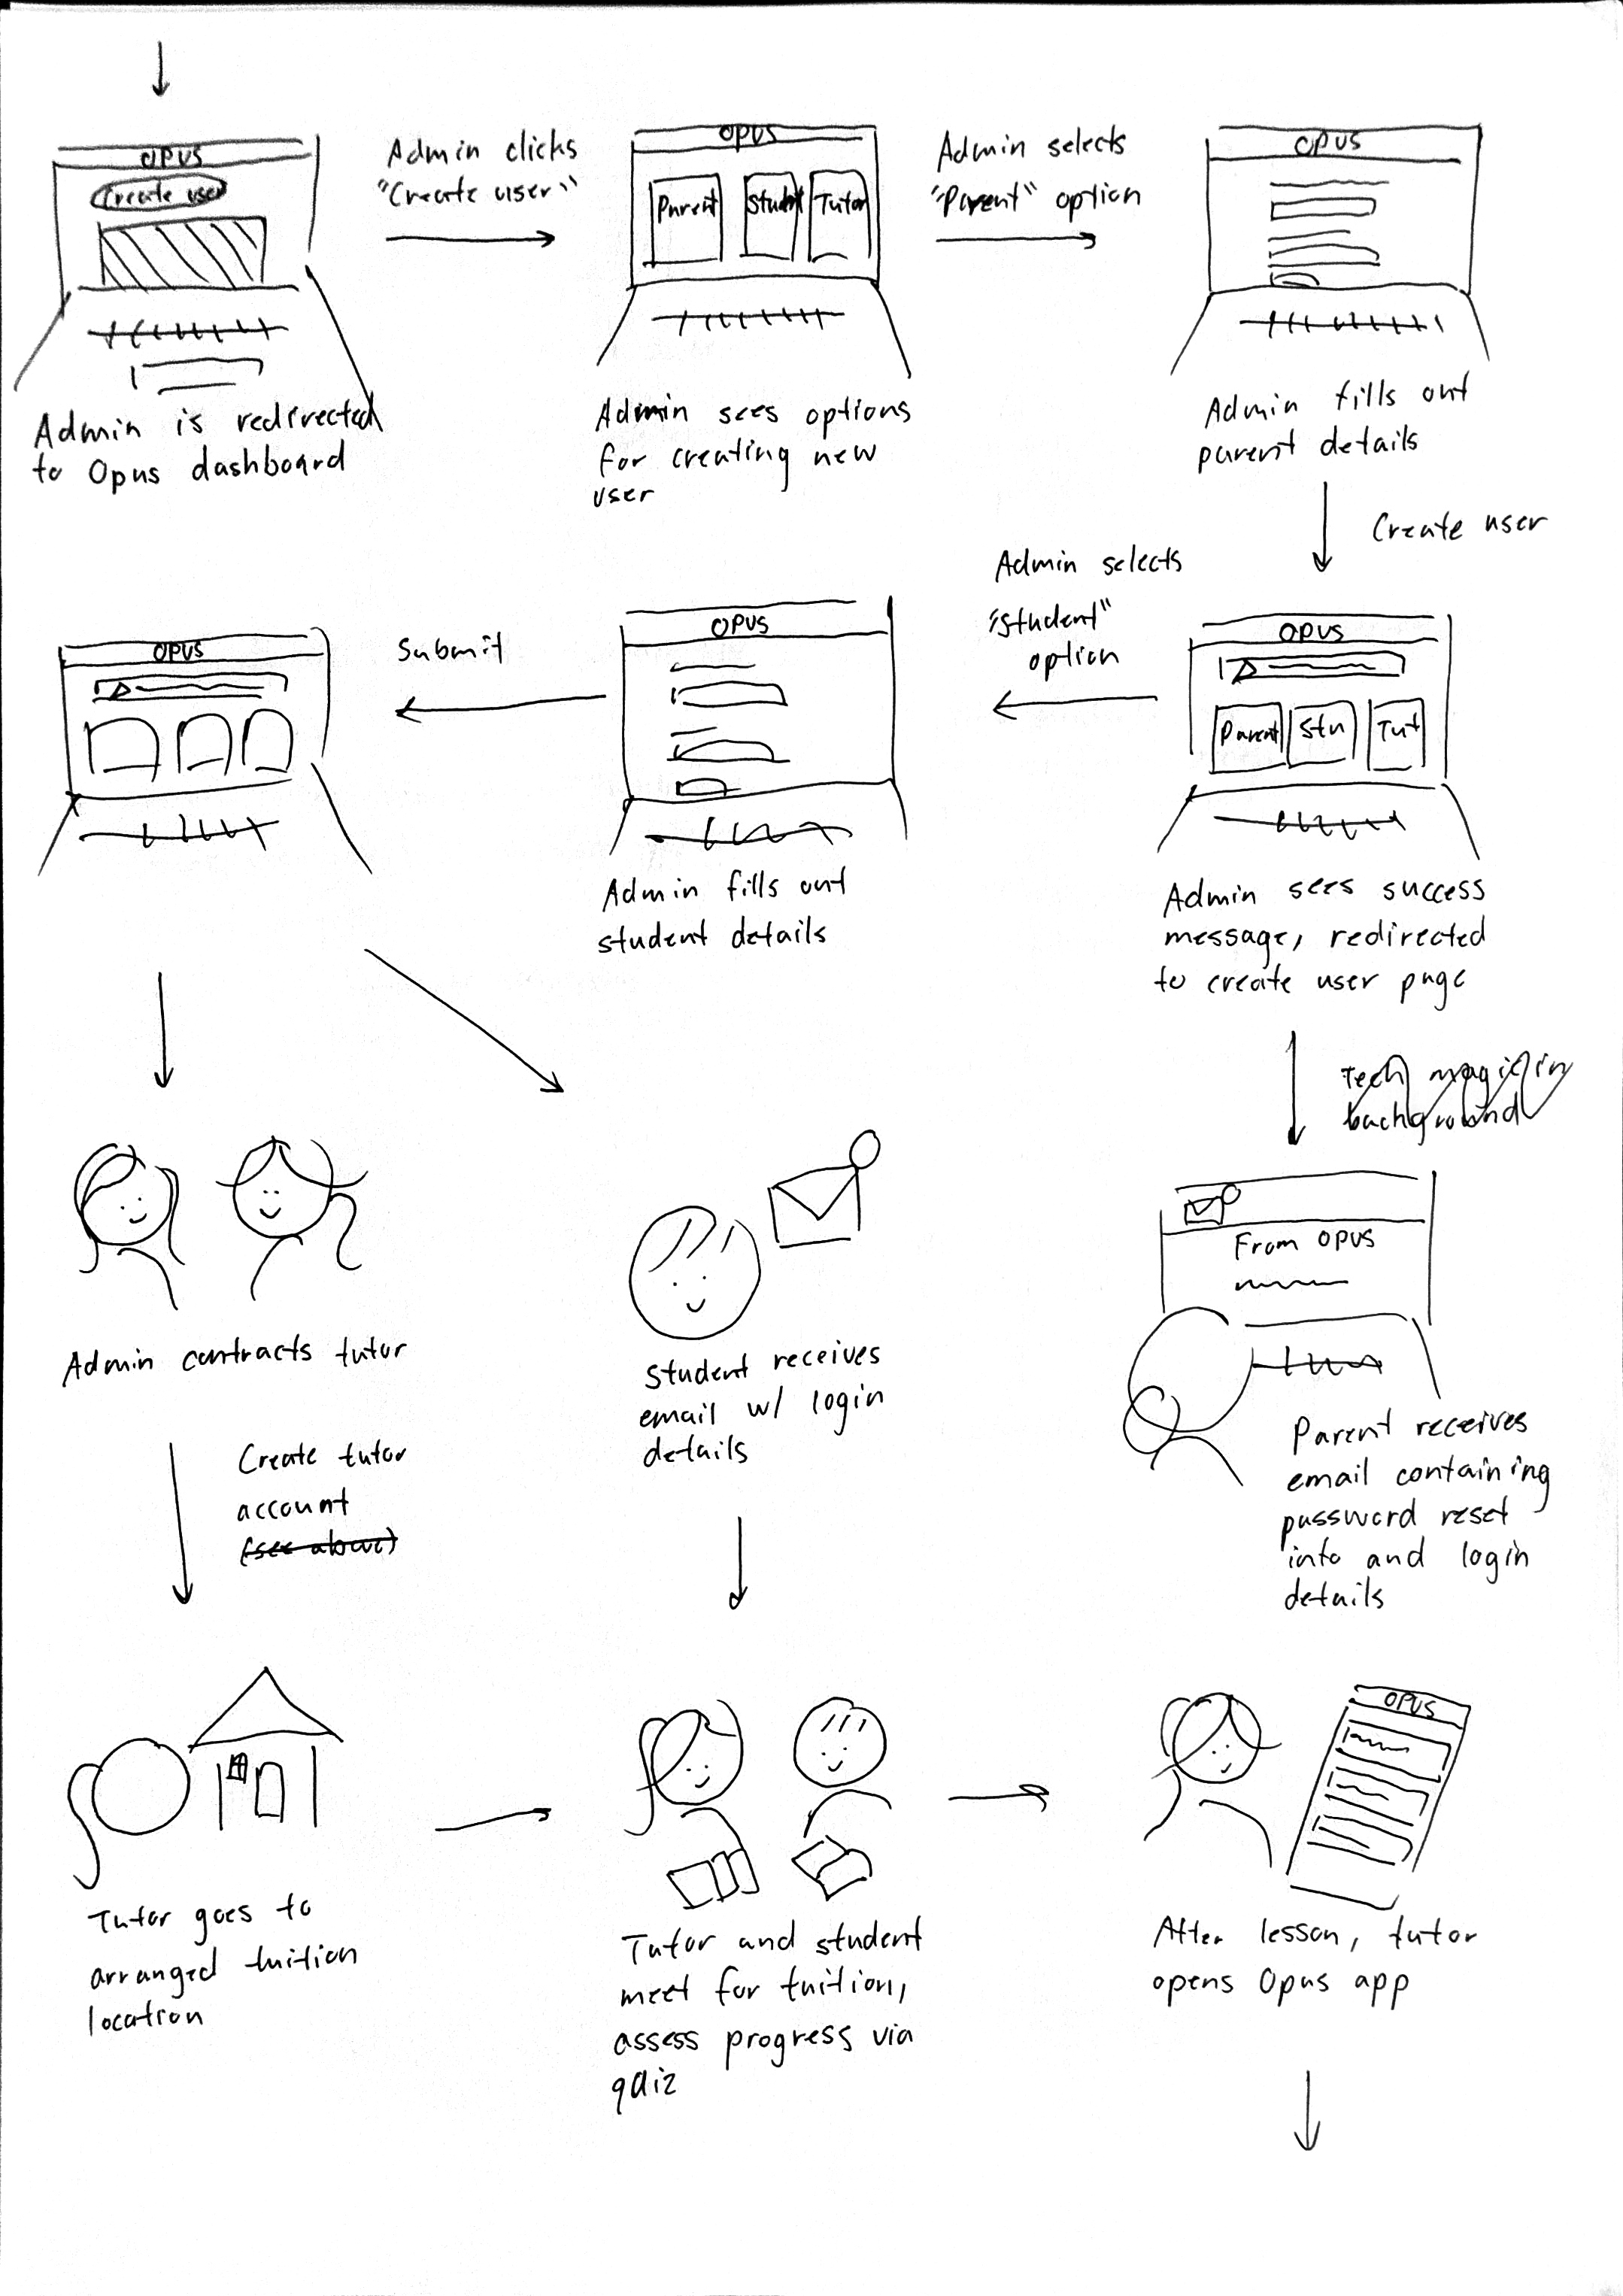 OPUS
Create user
Admin is redirected
to Opus dashboard
Admin clicks
"Create user"
OPUS
Parent
Student
Tutor
Admin sees options
for creating new
user
Admin selects
"Parent" option
OPUS
Admin fills out
parent details
Create user
OPUS
Parent
Stu
Tut
Admin sees success
message, redirected
to create user page
Admin selects
"student"
option
OPUS
Admin fills out
student details
Submit
OPUS
Tech magic in
background
From OPUS
Parent receives
email containing
password reset
info and login
details
Student receives
email w/ login
details
Admin contracts tutor
Create tutor
account
(see above)
Tutor goes to
arranged tuition
location
Tutor and student
meet for tuition,
assess progress via
quiz
OPUS
After lesson, tutor
opens Opus app